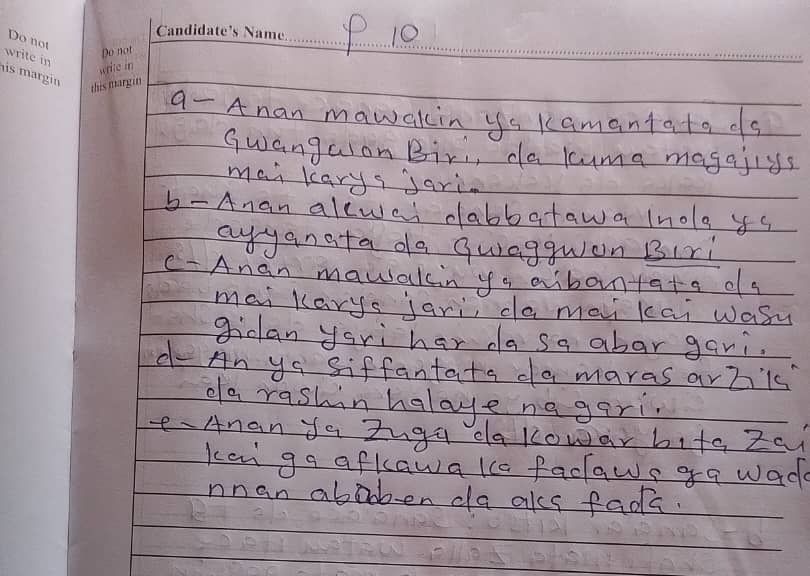 Do not
write in
his margin
Do not
write in
this margin
Candidate's Name
P 10
a- Anan mawakin ya kamantata da
Gwangwason Biri, da kuma magajiya
mai karya jari.
b- Anan akwai dabbatawa Inda ya
ayyanata da Gwaggwon Biri
c- Anan mawakin ya aibantata da
mai karya jari, da mai kai wasu
gidan yari har da sa abar gari.
d- An ya siffantata da maras arziki
da rashin halaye na gari.
e- Anan ya zuga da kowar bita zai
kai ga afkawa ka fadawa ga wada
nnan ababen da aka fada.